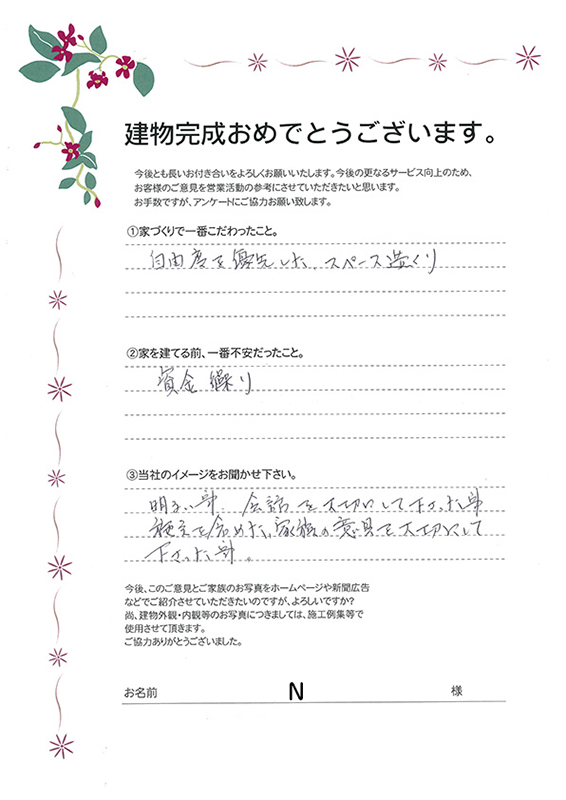 建物完成おめでとうございます。
今後とも長いお付き合いをよろしくお願いいたします。今後の更なるサービス向上のため、
お客様のご意見を営業活動の参考にさせていただきたいと思います。
お手数ですが、アンケートにご協力お願い致します。
①家づくりで一番こだわったこと。
自由度を優先した、スペース造くり
②家を建てる前、一番不安だったこと。
資金繰り
③当社のイメージをお聞かせ下さい。
明るい 会話を大切にして下さった
を含めた、家族の意見を大切にして
下さった
今後、このご意見とご家族のお写真をホームページや新聞広告
などでご紹介させていただきたいのですが、よろしいですか?
尚、建物外観・内観等のお写真につきましては、施工例集等で
使用させて頂きます。
ご協力ありがとうございました。
お名前 N 様